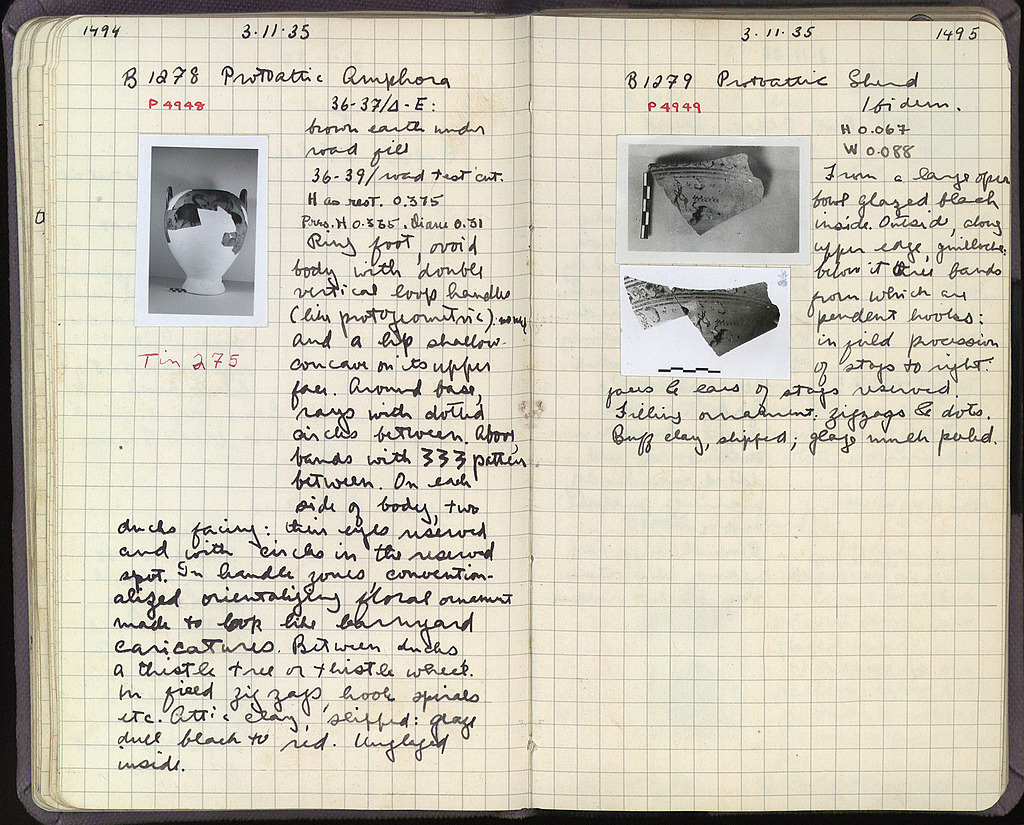 1494
3·11·35
B 1278 Protoattic Amphora
P 4948
36-37/Δ-E:
brown earth under
road fill
36-39/road test cut.
H as rest. 0.375
Pres. H 0.335. Diam 0.31
Ring foot, ovoid
body with double
vertical loop handles
(like protogeometric)
and a lip shallow-
concave on its upper
face. Around base,
rays with dotted
circles between. Above,
bands with 333 pattern
between. On each
side of body, two
ducks facing: their eyes reserved
and with circles in the reserved
spot. In handle zones, convention-
alized orientalizing floral ornament
made to look like barnyard
caricatures. Between ducks
a thistle tree or thistle wheel.
In field zigzags, hook spirals
etc. Attic clay, slipped: glaze
dull black to red. Unglazed
inside.
Tin 275
3·11·35
1495
B 1279 Protoattic Sherd
P 4949
Ibidem.
H 0.067
W 0.088
From a large open
bowl glazed black
inside. Outside, along
upper edge, guilloche:
below it three bands
from which are
pendent hooks:
in field procession
of stags to right:
faces & ears of stags reserved.
Filling ornament: zigzags & dots.
Buff clay, slipped; glaze much peeled.